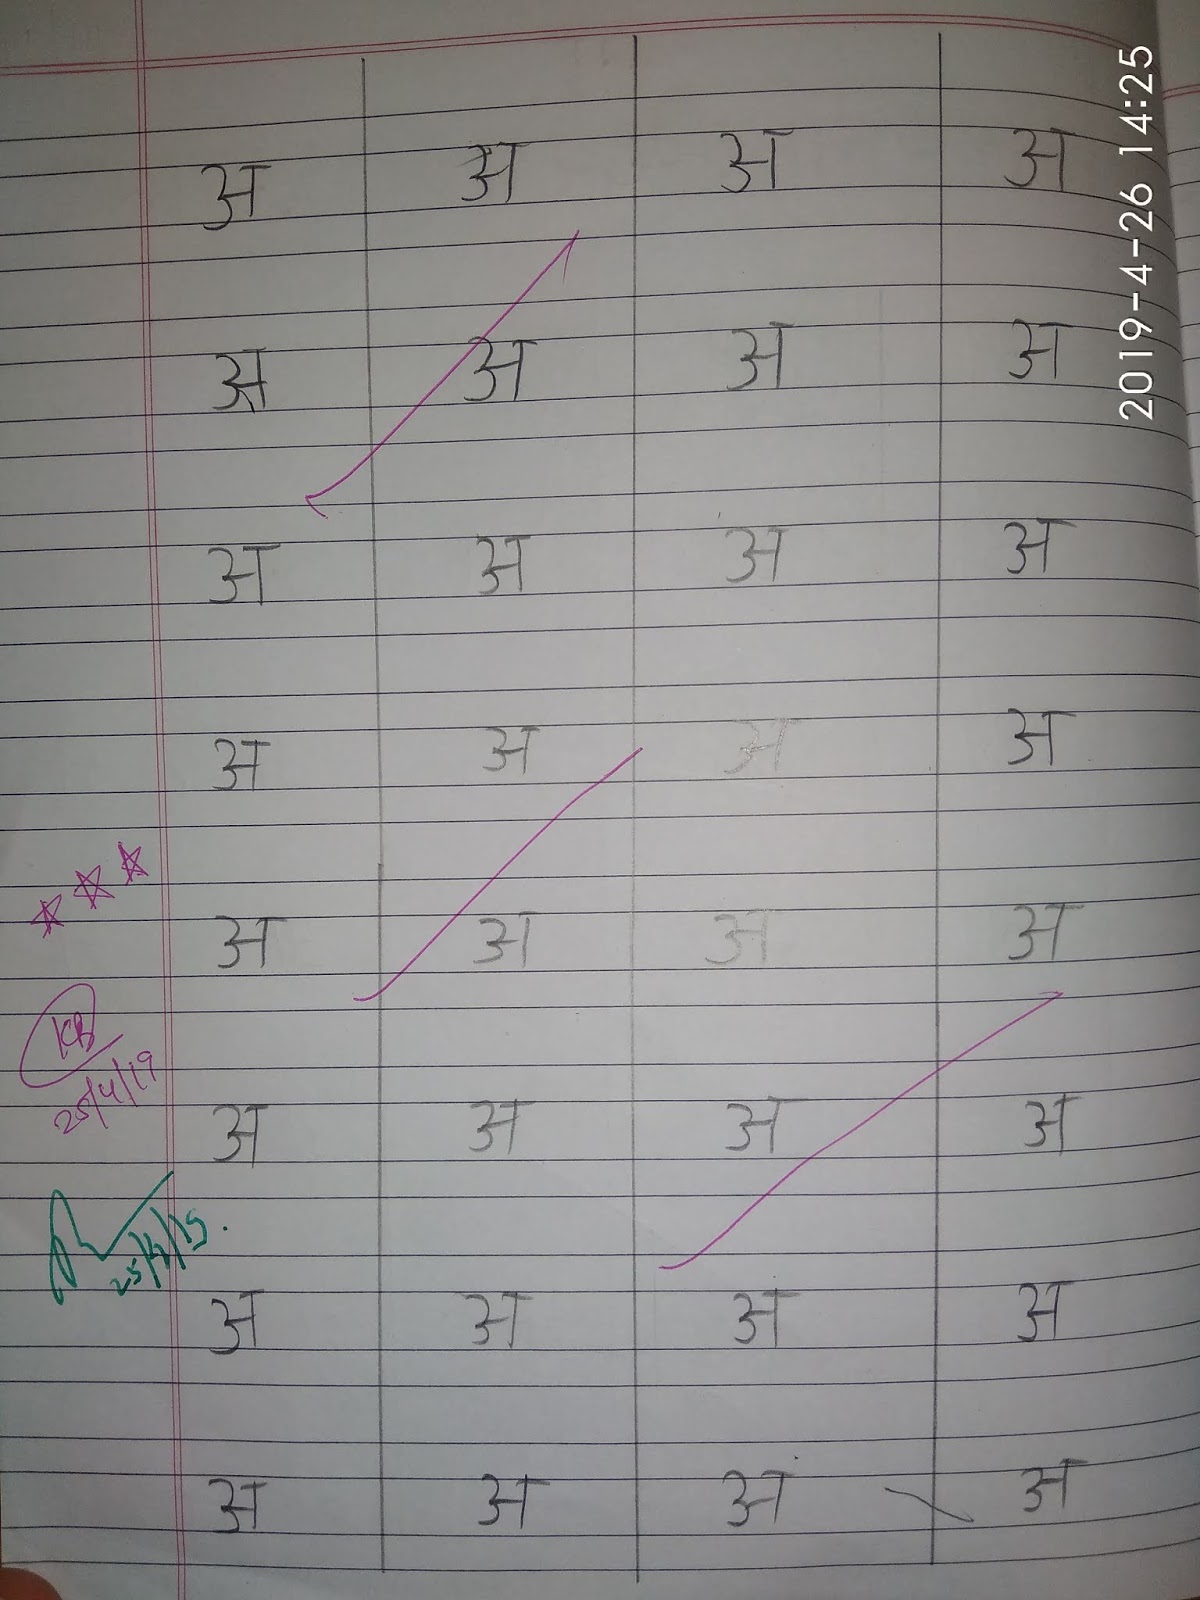 अ अ अ अ
अ अ अ अ
अ अ अ अ
अ अ अ अ
अ अ अ अ
अ अ अ अ
अ अ अ अ
अ अ अ अ
KB
25/4/19
25/4/19.
2019-4-26 14:25